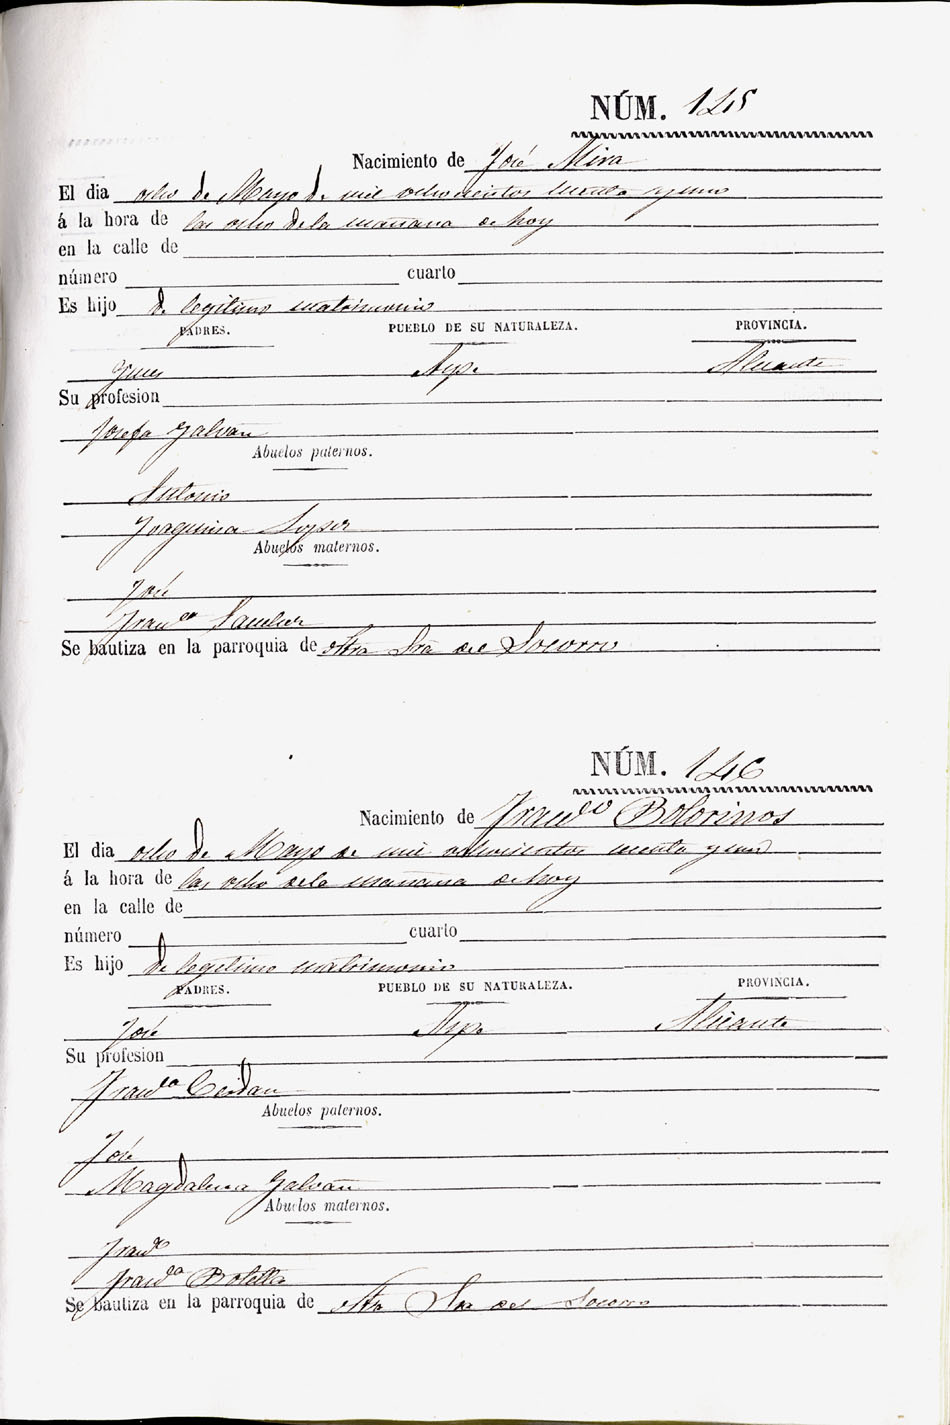 NÚM. 145
Nacimiento de José Mira
El dia ocho de Mayo de mil ochocientos sesenta y uno
á la hora de las ocho de la mañana de hoy
en la calle de
número cuarto
Es hijo de legitimo matrimonio
PADRES. PUEBLO DE SU NATURALEZA. PROVINCIA.
Aspe Alicante
Su profesion
Josefa Galvañ
Abuelos paternos.
Antonio
Joaquina
Abuelos maternos.
José
Franca Sanchez
Se bautiza en la parroquia de Ntra Sra del Socorro
NÚM. 146
Nacimiento de Franco Bolorinos
El dia ocho de Mayo de mil ochocientos sesenta y uno
á la hora de las ocho de la mañana de hoy
en la calle de
número cuarto
Es hijo de legitimo matrimonio
PADRES. PUEBLO DE SU NATURALEZA. PROVINCIA.
José Aspe Alicante
Su profesion
Franca Cerdan
Abuelos paternos.
José
Magdalena Galvañ
Abuelos maternos.
Franco
Franca Botella
Se bautiza en la parroquia de Ntra Sra del Socorro